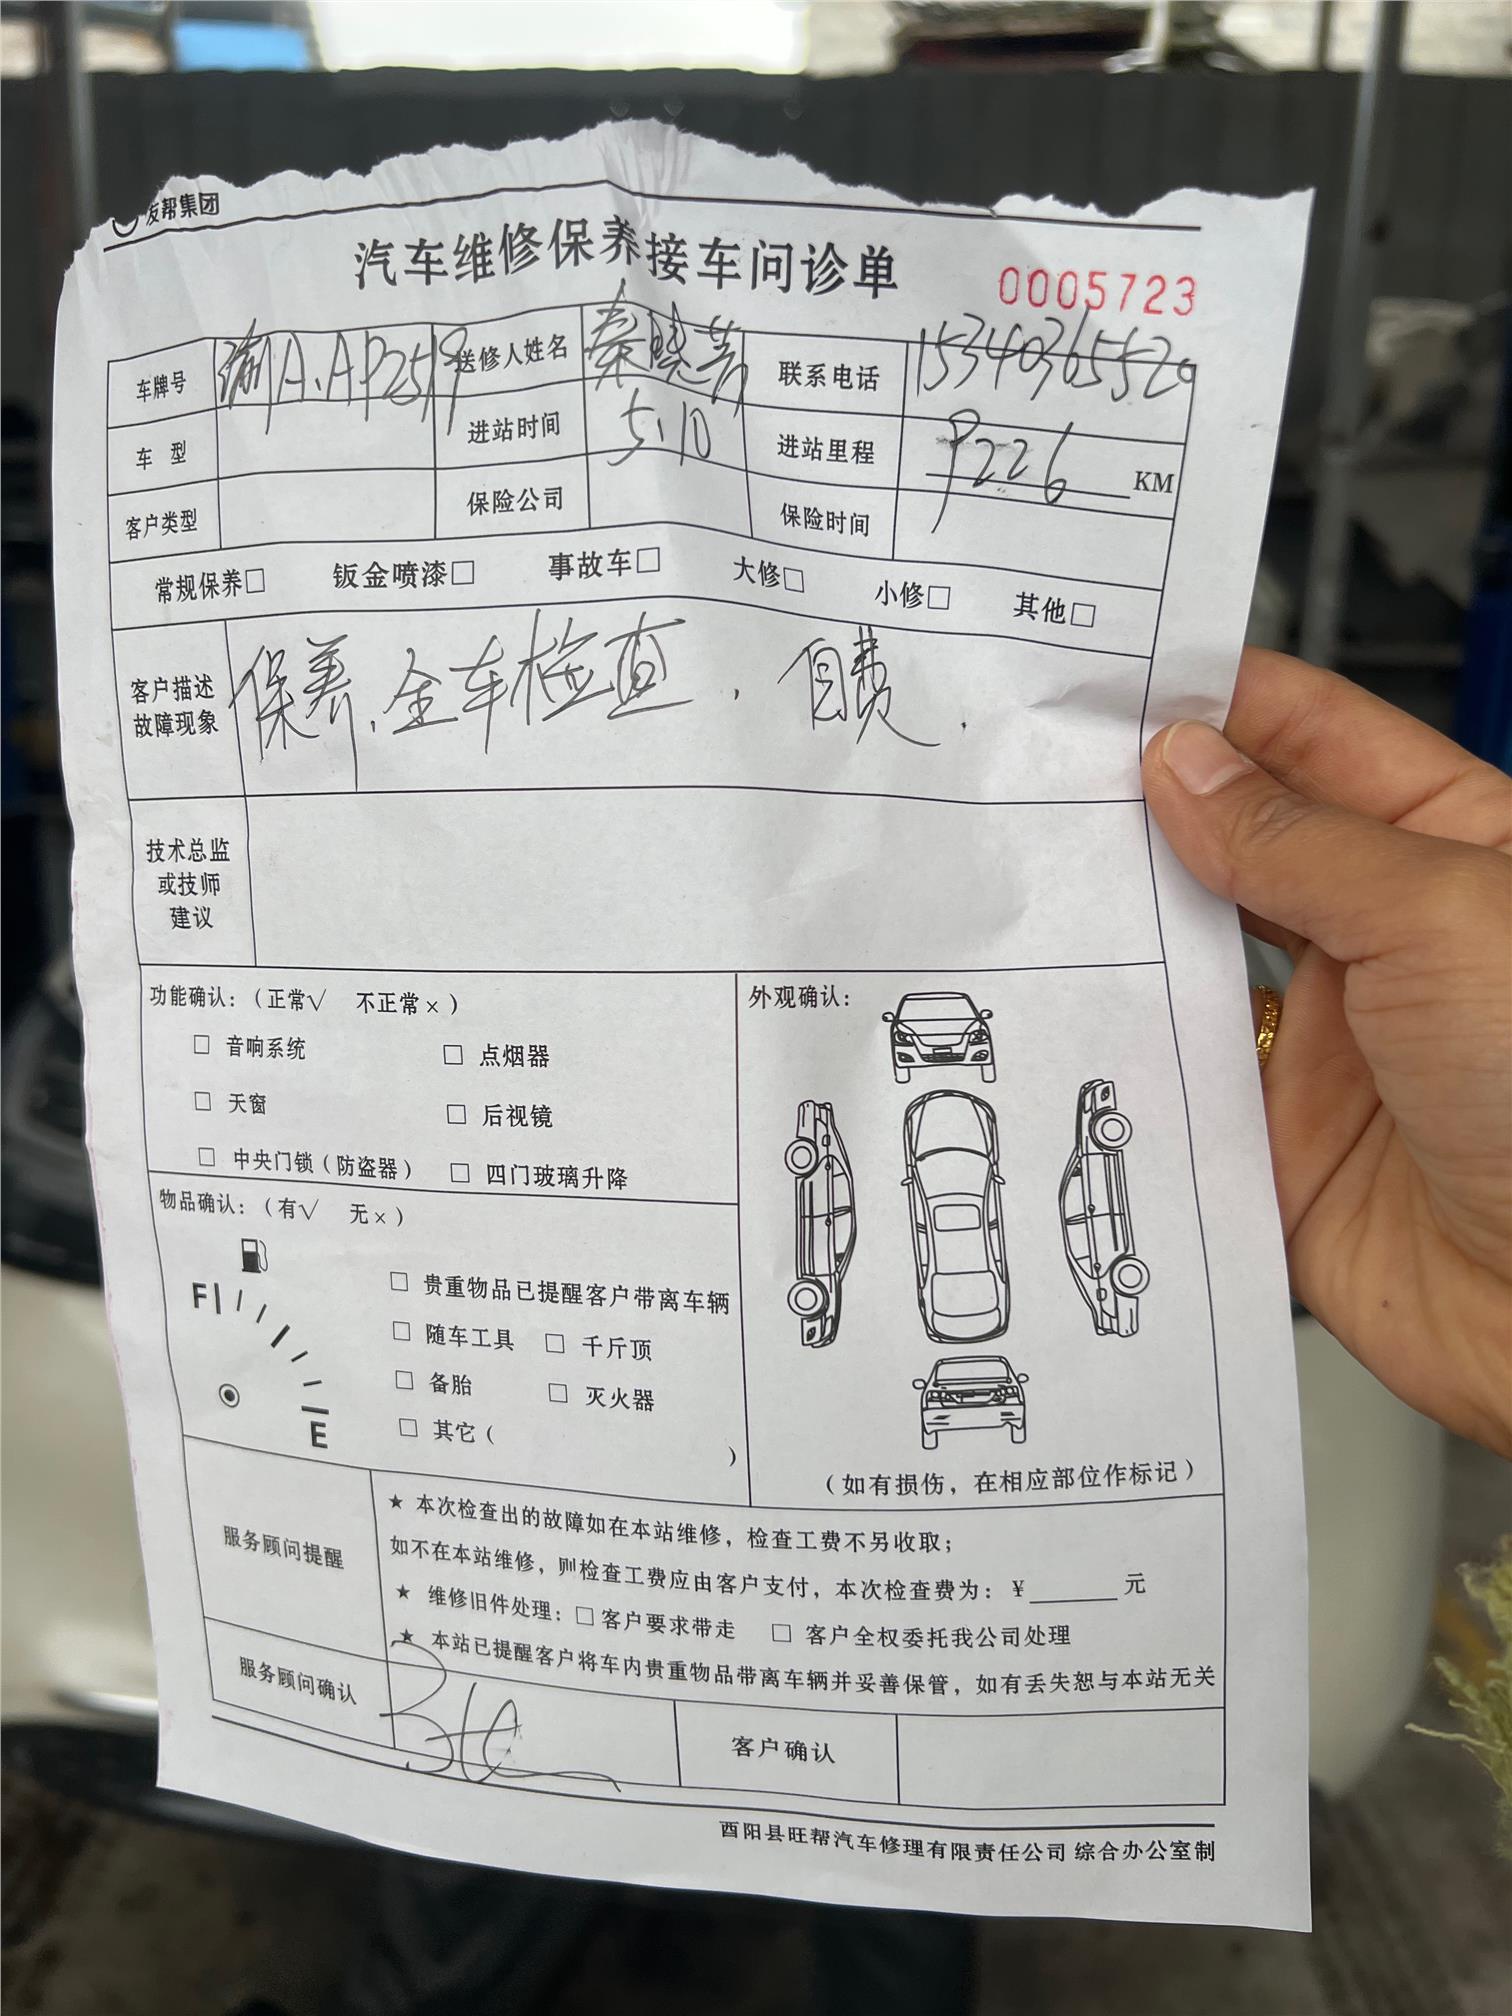 友帮集团
汽车维修保养接车问诊单 0005723
车牌号 渝A.AP2519 送修人姓名 秦晓芳 联系电话 15340365520
车 型 进站时间 5.10 进站里程 9226 KM
客户类型 保险公司 保险时间
常规保养□ 钣金喷漆□ 事故车□ 大修□ 小修□ 其他□
客户描述
故障现象
保养、全车检查. 自费.
技术总监
或技师
建议
功能确认:(正常√ 不正常×)
□ 音响系统 □ 点烟器
□ 天窗 □ 后视镜
□ 中央门锁(防盗器) □ 四门玻璃升降
物品确认:(有√ 无×)
F
E
□ 贵重物品已提醒客户带离车辆
□ 随车工具 □ 千斤顶
□ 备胎 □ 灭火器
□ 其它( )
外观确认:
(如有损伤，在相应部位作标记)
服务顾问提醒
★ 本次检查出的故障如在本站维修，检查工费不另收取;
如不在本站维修，则检查工费应由客户支付，本次检查费为: ¥______元
★ 维修旧件处理: □ 客户要求带走 □ 客户全权委托我公司处理
★ 本站已提醒客户将车内贵重物品带离车辆并妥善保管，如有丢失恕与本站无关
服务顾问确认 客户确认
酉阳县旺帮汽车修理有限责任公司 综合办公室制